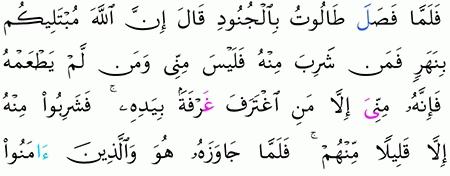 فَلَمَّا فَصَلَ طَالُوتُ بِالْجُنُودِ قَالَ إِنَّ اللَّهَ مُبْتَلِيكُم
بِنَهَرٍ فَمَن شَرِبَ مِنْهُ فَلَيْسَ مِنِّى وَمَن لَّمْ يَطْعَمْهُ
فَإِنَّهُۥ مِنِّىَ إِلَّا مَنِ اغْتَرَفَ غَرْفَةَۢ بِيَدِهِۦ ۚ فَشَرِبُوا۟ مِنْهُ
إِلَّا قَلِيلًا مِّنْهُمْ ۚ فَلَمَّا جَاوَزَهُۥ هُوَ وَالَّذِينَ ءَامَنُوا۟